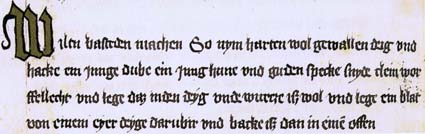 Wilen basteden machen So nym harten wol gewallen deig vnd
hacke ein junge dube ein jung hune vnd guden specke snyde clein wor
ffelleche vnd lege daz inden deyg vnde wurcze iz wol vnd lege ein blat
von einem eyer deyge darubir vnd backe iz dan in eimē offen